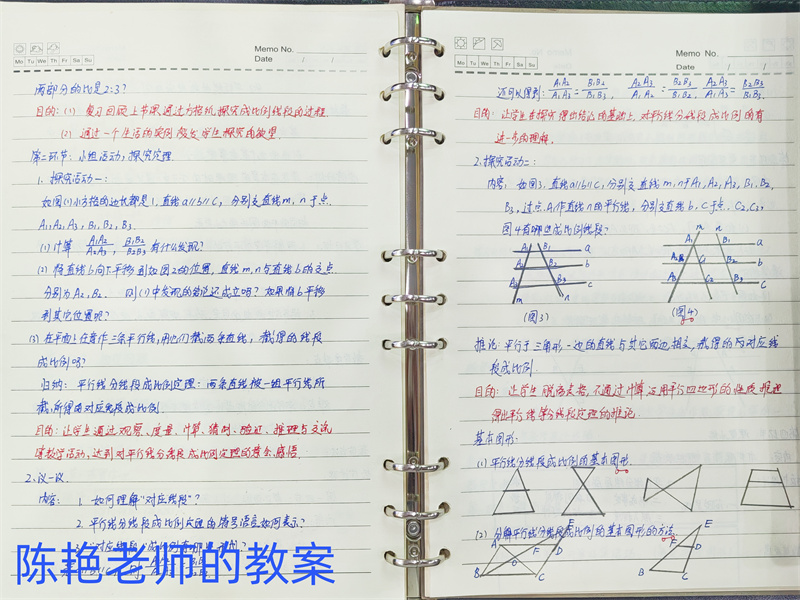 Memo No.
Date / /
Mo Tu We Th Fr Sa Su
两部分的比是2:3?
目的:(1) 复习回顾上节课,通过方格纸,探究成比例线段的过程.
(2) 通过一个生活的实例激发学生探究的欲望.
第二环节:小组活动,探究定理
1. 探究活动一:
如图(1)小方格的边长都是1,直线a//b//c,分别交直线m,n于点
A₁,A₂,A₃,B₁,B₂,B₃.
(1)计算 A₁A₂/A₂A₃, B₁B₂/B₂B₃有什么发现?
(2) 将直线b向下平移到如图2的位置,直线m,n与直线b的交点
分别为A₂,B₂. 则(1)中发现的结论还成立吗?如果将b平移
到其它位置呢?
(3) 在平面上任意作三条平行线,用它们截两条直线,截得的线段
成比例吗?
归纳:平行线分线段成比例定理:两条直线被一组平行线所
截,所得的对应线段成比例.
目的:让学生通过观察、度量、计算、猜测、验证、推理与交流
等数学活动,达到对平行线分线段成比例定理的意会、感悟.
2. 议一议.
内容: 1. 如何理解“对应线段”?
2. 平行线分线段成比例定理的符号语言如何表示?
3. “对应线段”成比例有哪
陈艳老师的教案
Memo No.
Date / /
Mo Tu We Th Fr Sa Su
还可以得到: A₁A₂/A₁A₃ = B₁B₂/B₁B₃, A₂A₃/A₁A₃ = B₂B₃/B₁B₃.
目的:让学生在探究得出结论的基础上,对平行线分线段成比例的有
进一步的理解.
2.探究活动二:
内容:如图3,直线a//b//c,分别交直线m,n于A₁,A₂,A₃,B₁,B₂,
B₃,过点A₁作直线n的平行线,分别交直线b,c于点C₂,C₃,
图4有哪些成比例线段?
A₁ B₁ a
A₂ B₂ b
A₃ B₃ c
m n
(图3)
m n
A₁ B₁ a
A₂ C₂ B₂ b
A₃ C₃ B₃ c
(图4)
推论:平行于三角形一边的直线与其它两边相交,截得的对应线
段成比例.
目的:让学生脱离表格,不通过计算,运用平行四边形的性质,推理
得出平行线等分线段定理的推论.
基本图形:
(1) 平行线分线段成比例的基本图形.
(2) 分解平行线分线段成比例的基本图形的方法
A E F D O B C
E F D B C